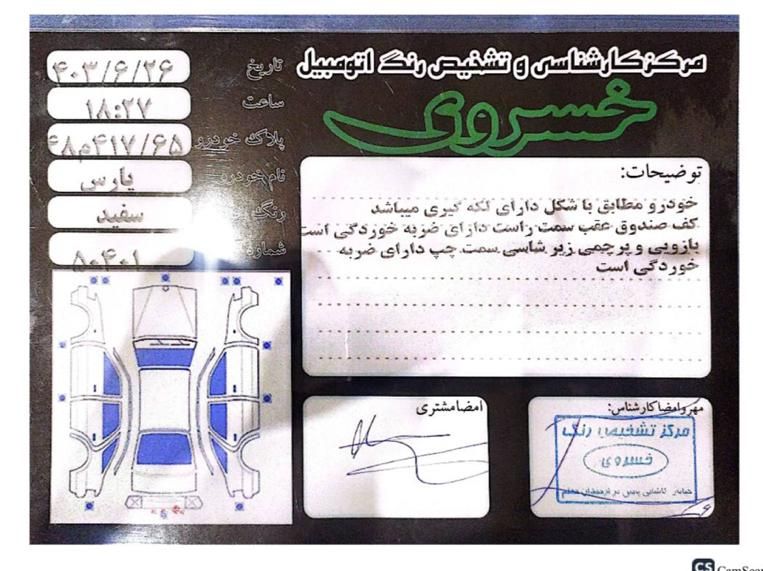 مرکز کارشناسی و تشخیص رنگ اتومبیل
خسروی
تاریخ ۴۰۳/۶/۲۶
ساعت ۱۸:۲۷
پلاک خودرو ۴۸م۴۱۷/۶۵
نام خودرو پارس
رنگ سفید
شماره ۸۰۴۰۱
توضیحات:
خودرو مطابق با شکل دارای لکه گیری میباشد
کف صندوق عقب سمت راست دارای ضربه خوردگی است
بازویی و پرچمی زیر شاسی سمت چپ دارای ضربه
خوردگی است
امضا مشتری
مهر و امضا کارشناس:
مرکز تشخیص رنگ
خسروی
CS CamScan